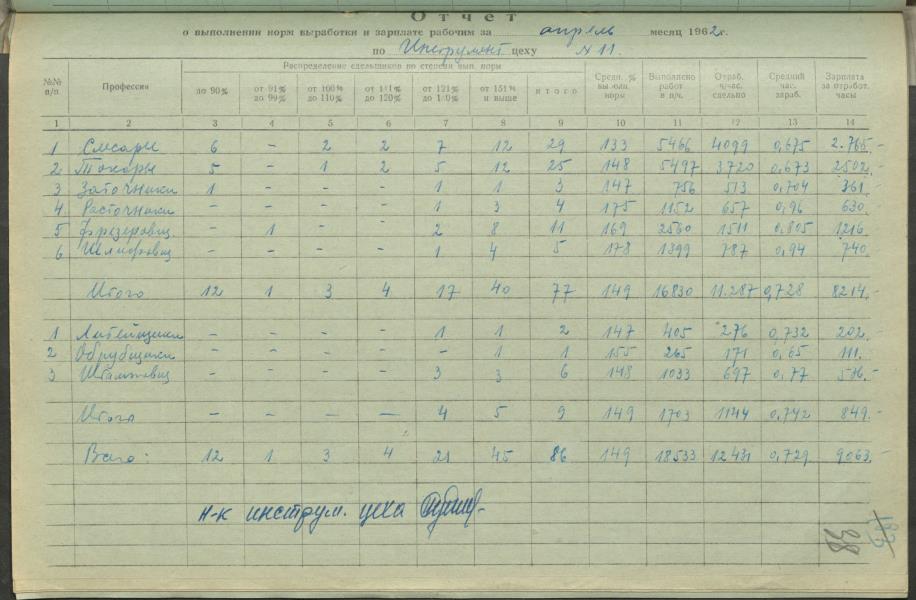 Отчет
о выполнении норм выработки и зарплате рабочим за апрель месяц 1962г.
по Инструмент цеху N 11.
№№ п/п Профессия Распределение сдельщиков по степени вып. нормы Средн. % выполн. нормы Выполнено работ в н/ч. Отраб. ч/час. сдельно Средний час. зараб. Зарплата за отработ. часы
до 90% от 91% до 99% от 100% до 110% от 111% до 120% от 121% до 150% от 151% и выше итого
1 2 3 4 5 6 7 8 9 10 11 12 13 14
1 Слесари 6 - 2 2 7 12 29 133 5466 4099 0,675 2.765.-
2 Токари 5 - 1 2 5 12 25 148 5497 3720 0,673 2502.-
3 Заточники 1 - - - 1 1 3 147 756 513 0,704 361.-
4 Расточники - - - - 1 3 4 175 1152 657 0,96 630.-
5 Фрезеровщ - 1 - - 2 8 11 169 2560 1511 0,805 1216.-
6 Шлифовщ - - - - 1 4 5 178 1399 787 0,94 740.-
Итого 12 1 3 4 17 40 77 149 16830 11.287 0,728 8214.-
1 Литейщики - - - - 1 1 2 147 405 276 0,732 202.-
2 Обрубщики - - - - - 1 1 155 265 171 0,65 111.-
3 Штамповщ - - - - 3 3 6 148 1033 697 0,77 536.-
Итого - - - - 4 5 9 149 1703 1144 0,742 849.-
Всего: 12 1 3 4 21 45 86 149 18533 12431 0,729 9063.-
н-к инструм. цеха
38